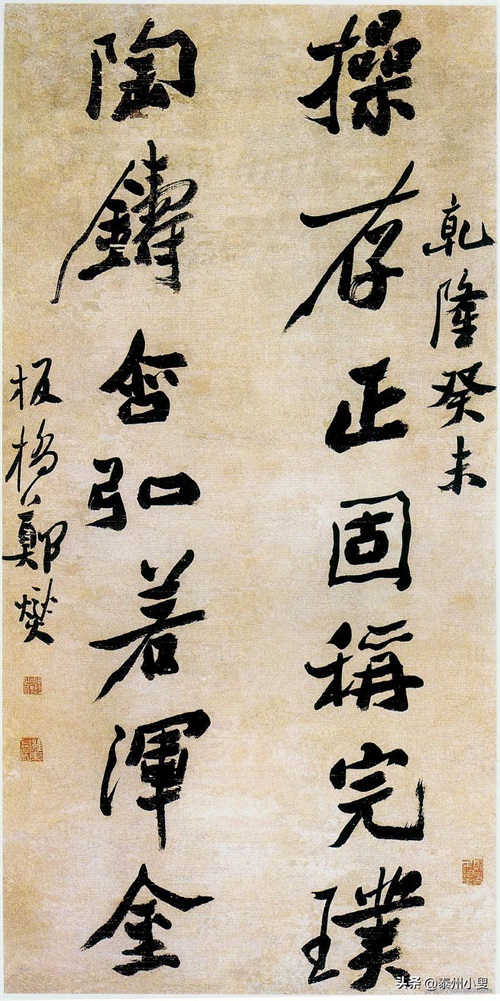 操存正固稱完璞
乾隆癸未
陶鑄含弘若渾金
板橋鄭燮
头条@泰州小叟